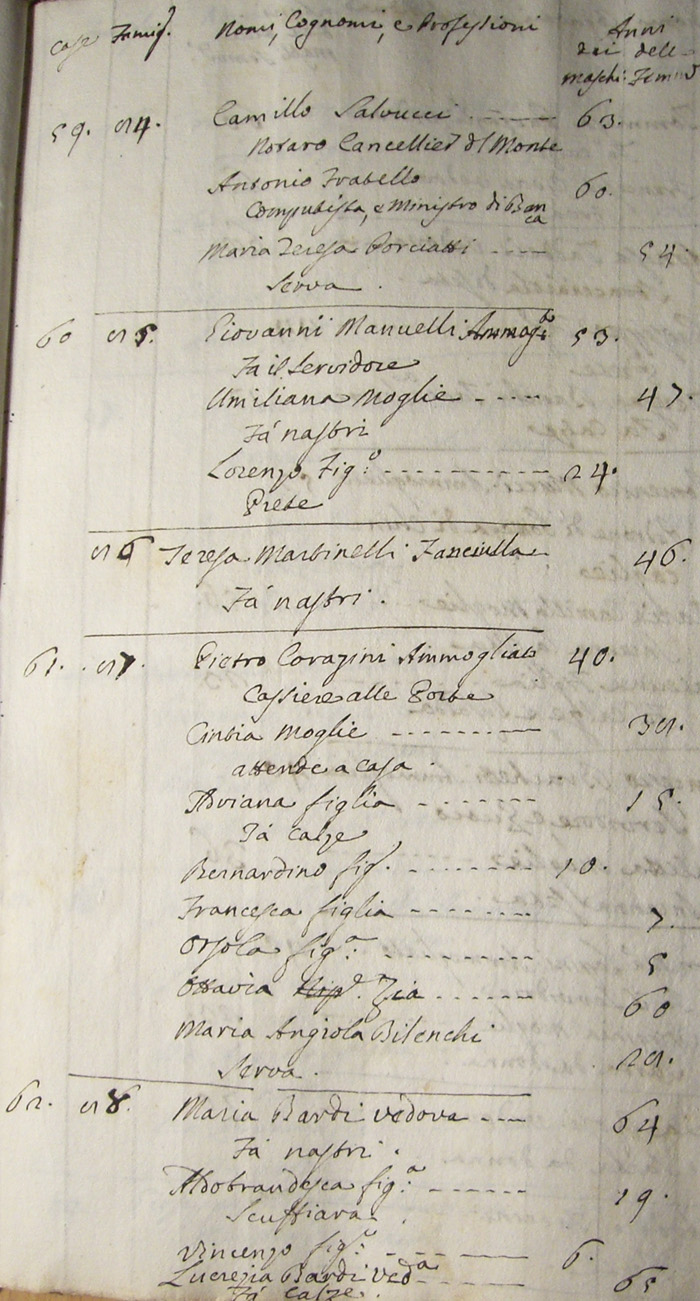 Case Famig. Nomi, Cognomi, e Professioni Anni
dei dell
maschi: Femi
59. 94. Camillo Salvucci 63.
Notaro Cancellier dl Monte
Antonio Fratello 60.
Computista, e Ministro di Ban
ca
Maria Teresa Porciatti 54.
Serva.
60 95. Giovanni Manuelli Ammog:to 53.
Fa il Servidore
Umiliana Moglie 47.
Fà nastri
Lorenzo Fig:o 24.
Prete
96 Teresa Martinelli Fanciulla 46.
Fà nastri.
61. 97. Pietro Corazini Ammogliato 40.
Cassiere alle Porte
Cintia Moglie 39.
attende a casa.
Adriana figlia 15.
Fà calze
Bernardino fig. 10.
Francesca figlia 7.
Orsola fig:a 5
Ottavia Zia 60
Maria Angiola Bilenchi
Serva. 29.
62. 98. Maria Bardi vedova 64
Fà nastri.
Aldobrandesca fig:a 19.
Scuffiara.
Vincenzo fig:o 6.
Lucrezia Bardi Ved:a 65
Fà Calze.